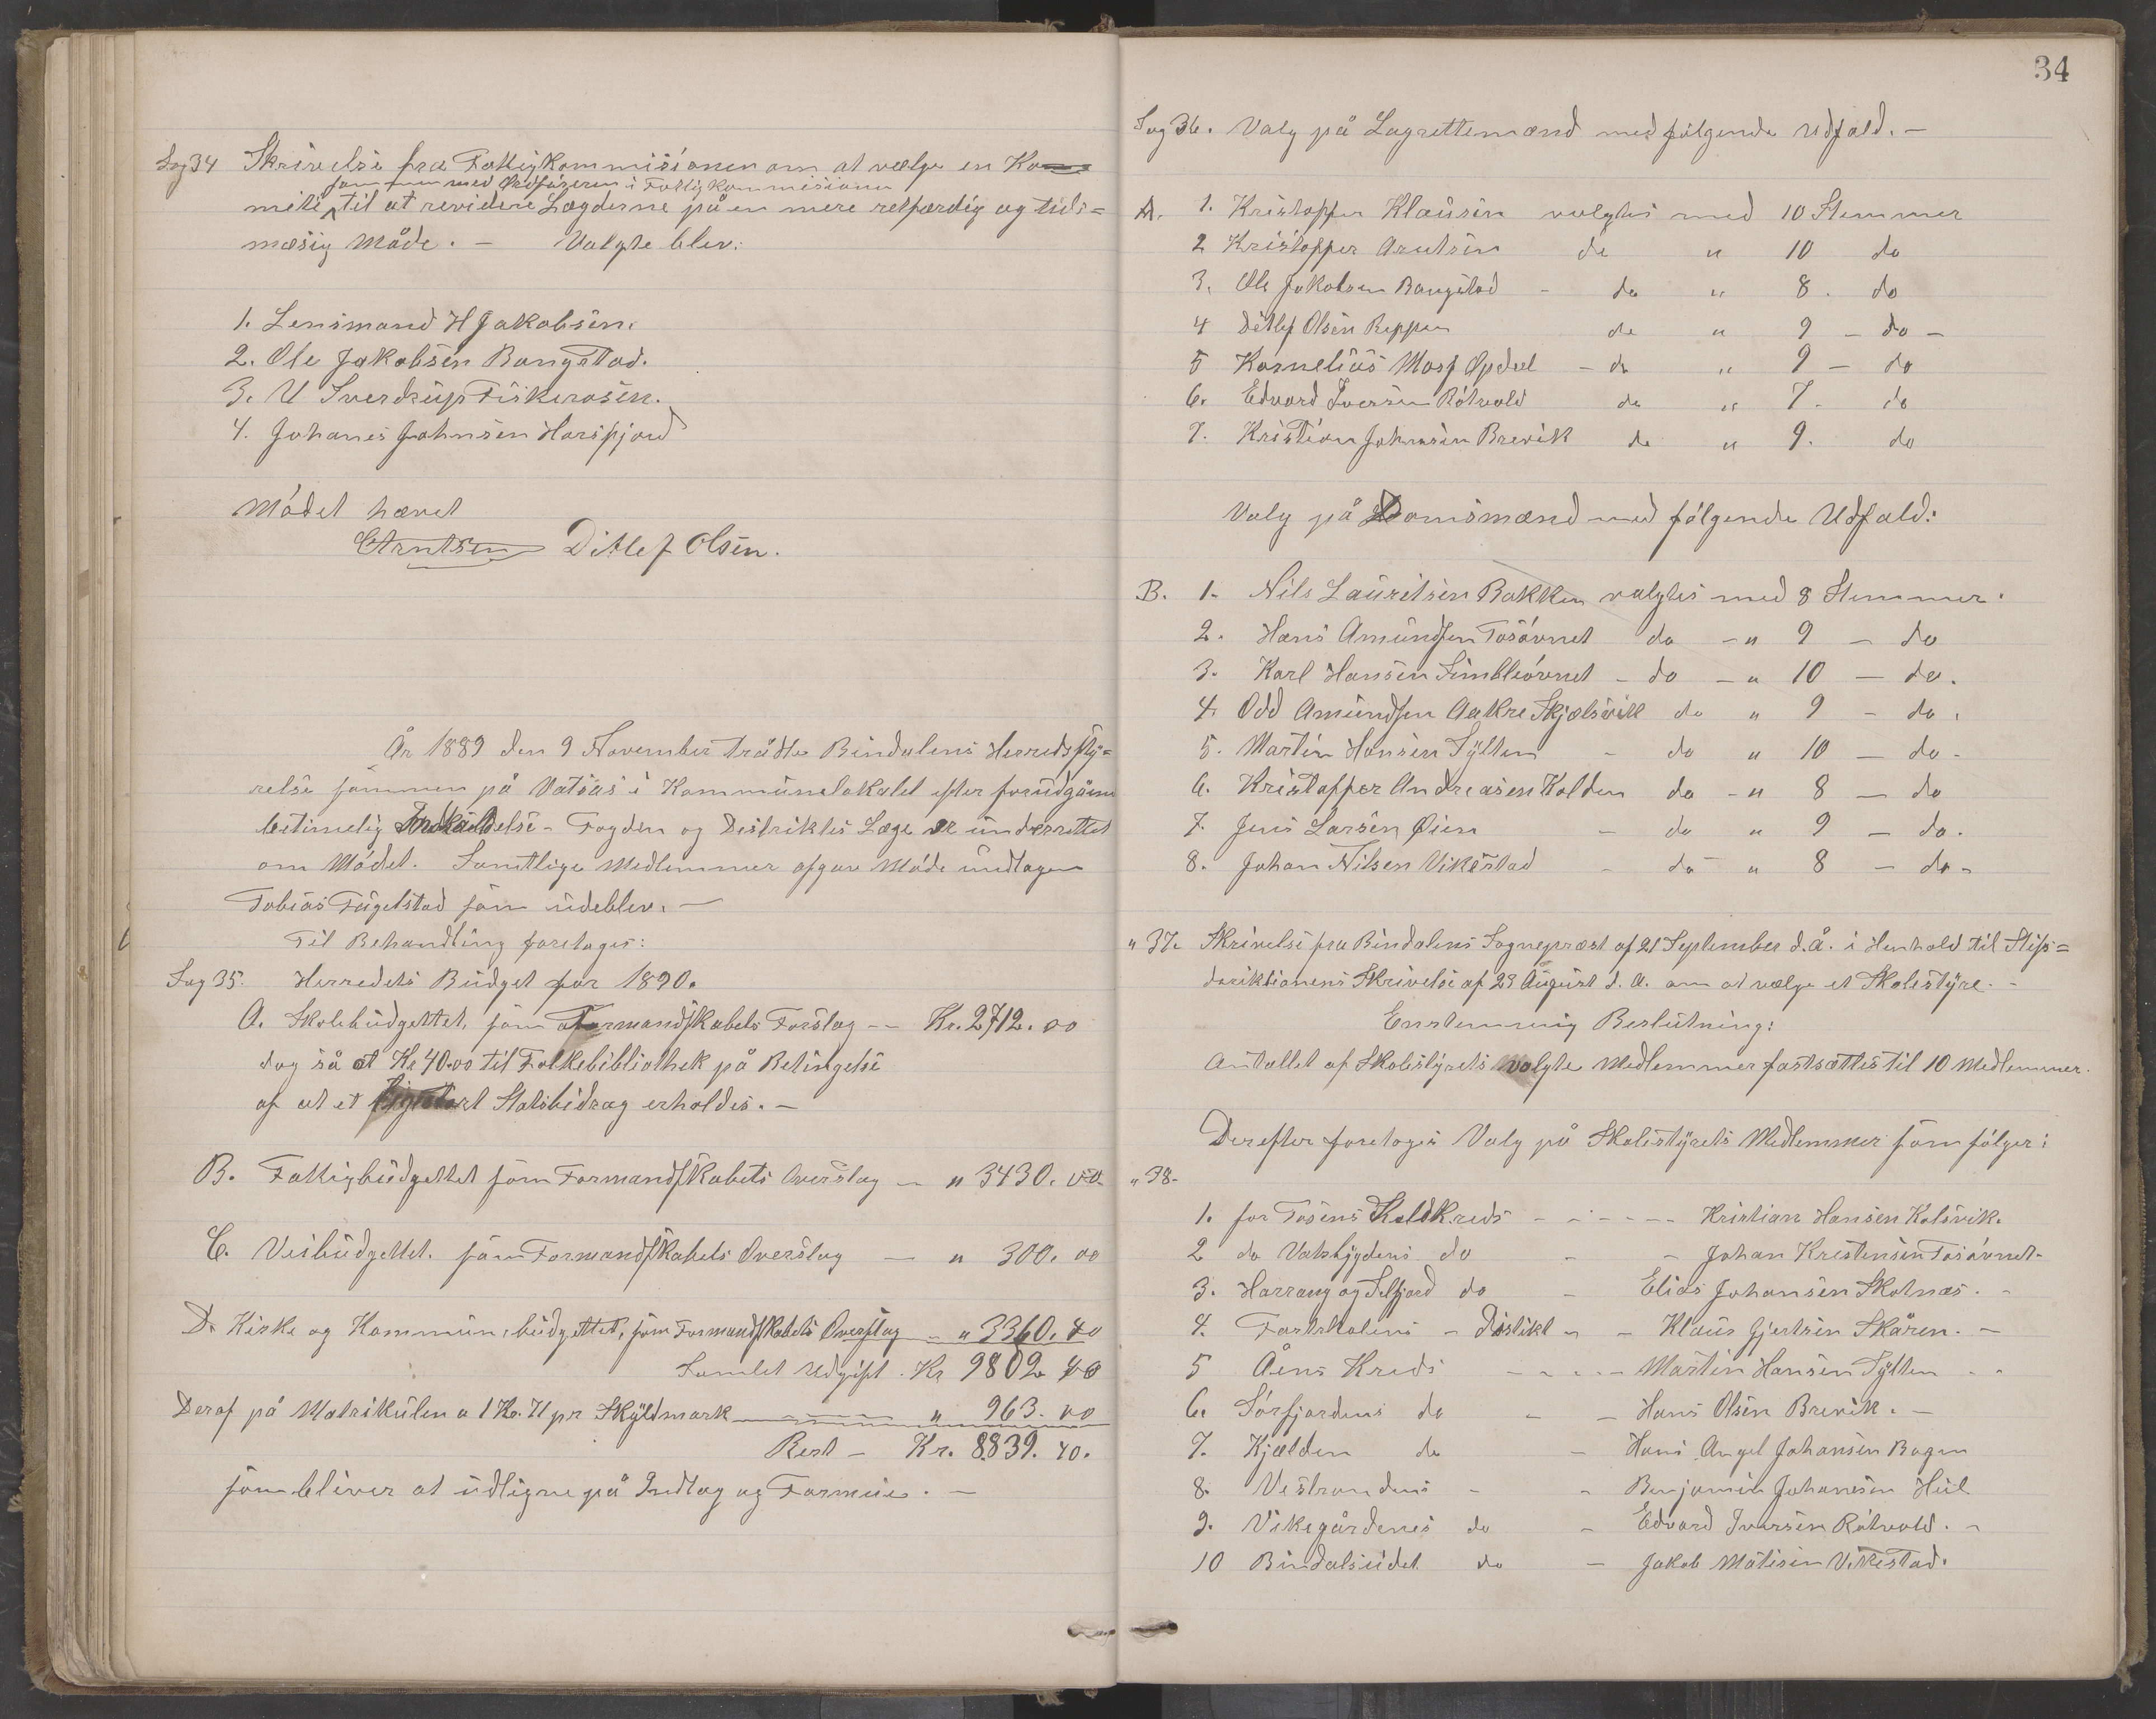 Sag 34 Skrivelse fra Fattigkommisionen om at vælge en Ko
som med Ordføreren i Fattigkommisionen
mite til at revidere Lægderne på en mere retfærdig og tids=
mæsig Måde. – Valgte blev:
1. Lensmand H Jakobsen.
2. Ole Jakobsen Bangstad.
3. U Sverdrup Fiskerosen.
4. Johanes Johnsen Horsfjord
Mödet hævet
CArntsen Ditlef Olsen.
År 1889 den 9 November trådte Bindalens Herredssty=
relse sammen på Vatsås i Kommunelokalet efter forudgåen
betimelig Indkaldelse – Fogden og Distriktis Læge er underrettet
om Mödet. Samtlige Medlemmer afgav Möde undtagen
Tobias Fugelstad som udeblev. –
Til Behandling foretoges:
Sag 35. Herredets Budget for 1890.
A. Skolebudgettet, som Formandskabets Forslag -- Kr. 2712. 00
dog så at Kr 40.00 til Folkebibliothek på Betingelse
af at et ligestort Statsbidrag erholdes. –
B. Fattigbudgettet som Formandskabets Overslag – " 3430. 00.
C. Veibudgettet. som Formandskabets Overslag – " 300. 00
D. Kirke og Kommunebudgettet, som Formandskabets Overslag – " 3360. 40
Samlet Udgift. Kr 9802 40
Deraf på Matrikulen a 1 Kr. 71 pr Skyldmark " 963. 00
Rest – Kr. 8839. 40.
som bliver at udligne på Indtag og Formue. –
34
Sag 36. Valg på Lagrettemænd med fölgende Udfald. –
A. 1. Kristoffer Klausen valgtes med 10 Stemmer
2 Kristoffer Arntsen do " 10 do
3. Ole Jakobsen Bangstad – do " 8. do
4 Ditlef Olsen Reppen do " 9 – do –
5 Kornelius Mosf Opdal – do " 9 – do
6. Edvard Iversen Rötvold do " 7. do
7. Kristian Johnsen Brevik do " 9. do
Valg på Domsmænd med fölgende Udfald:
B. 1. Nils Lauritsen Bakken valgtes med 8 Stemmer.
2. Hans Amundsen Tosövnet do – " 9 – do
3. Karl Hansen Simbleövnet – do – " 10 – do.
4. Odd Amundsen Aakre Skjelsvik do " 9 – do.
5. Martin Hansen Sylten – do " 10 – do –
6. Kristoffer Andreasen Holden do – " 8 – do
7. Jens Larsen Øien – do " 9 – do.
8. Johan Nilsen Vikestad – do " 8 – do –
" 37. Skrivelse fra Bindalens Sognepræst af 21 September d. å. i Henhold til Stifs=
direktionens Skrivelse af 29 August d. A. om at vælge et Skolestyre. –
Enstemmig Beslutning:
Antallet af Skolestyrets valgte Medlemmer fastsættes til 10 Medlemmer.
Derefter foretoges Valg på Skolestyrets Medlemmer som fölger:
" 38.
1. for Tosens Kredt – – – – – Kristian Hansen Kolsvik.
2 do Vatsbygdens do – – Johan Kristensen Tosövnet –
3. Harrang og Selfjord do – Elias Johansen Skotnæs. –
4. Fastskolens – Distikt – – Klaus Gjertsen Skåren. –
5 Åens Kreds – – – – Martin Hansen Sylten – –
6. Sörfjordens do – – Hans Olsen Brevik. –
7. Kjælden do – Hans Angel Johansen Bogen
8. Vestrandens – – Benjamin Johansen Heil
9. Vikegårdenes do – Edvard Iversen Rötvold. –
10 Bindalseidet do – Jakob Mötisen Vikestad.